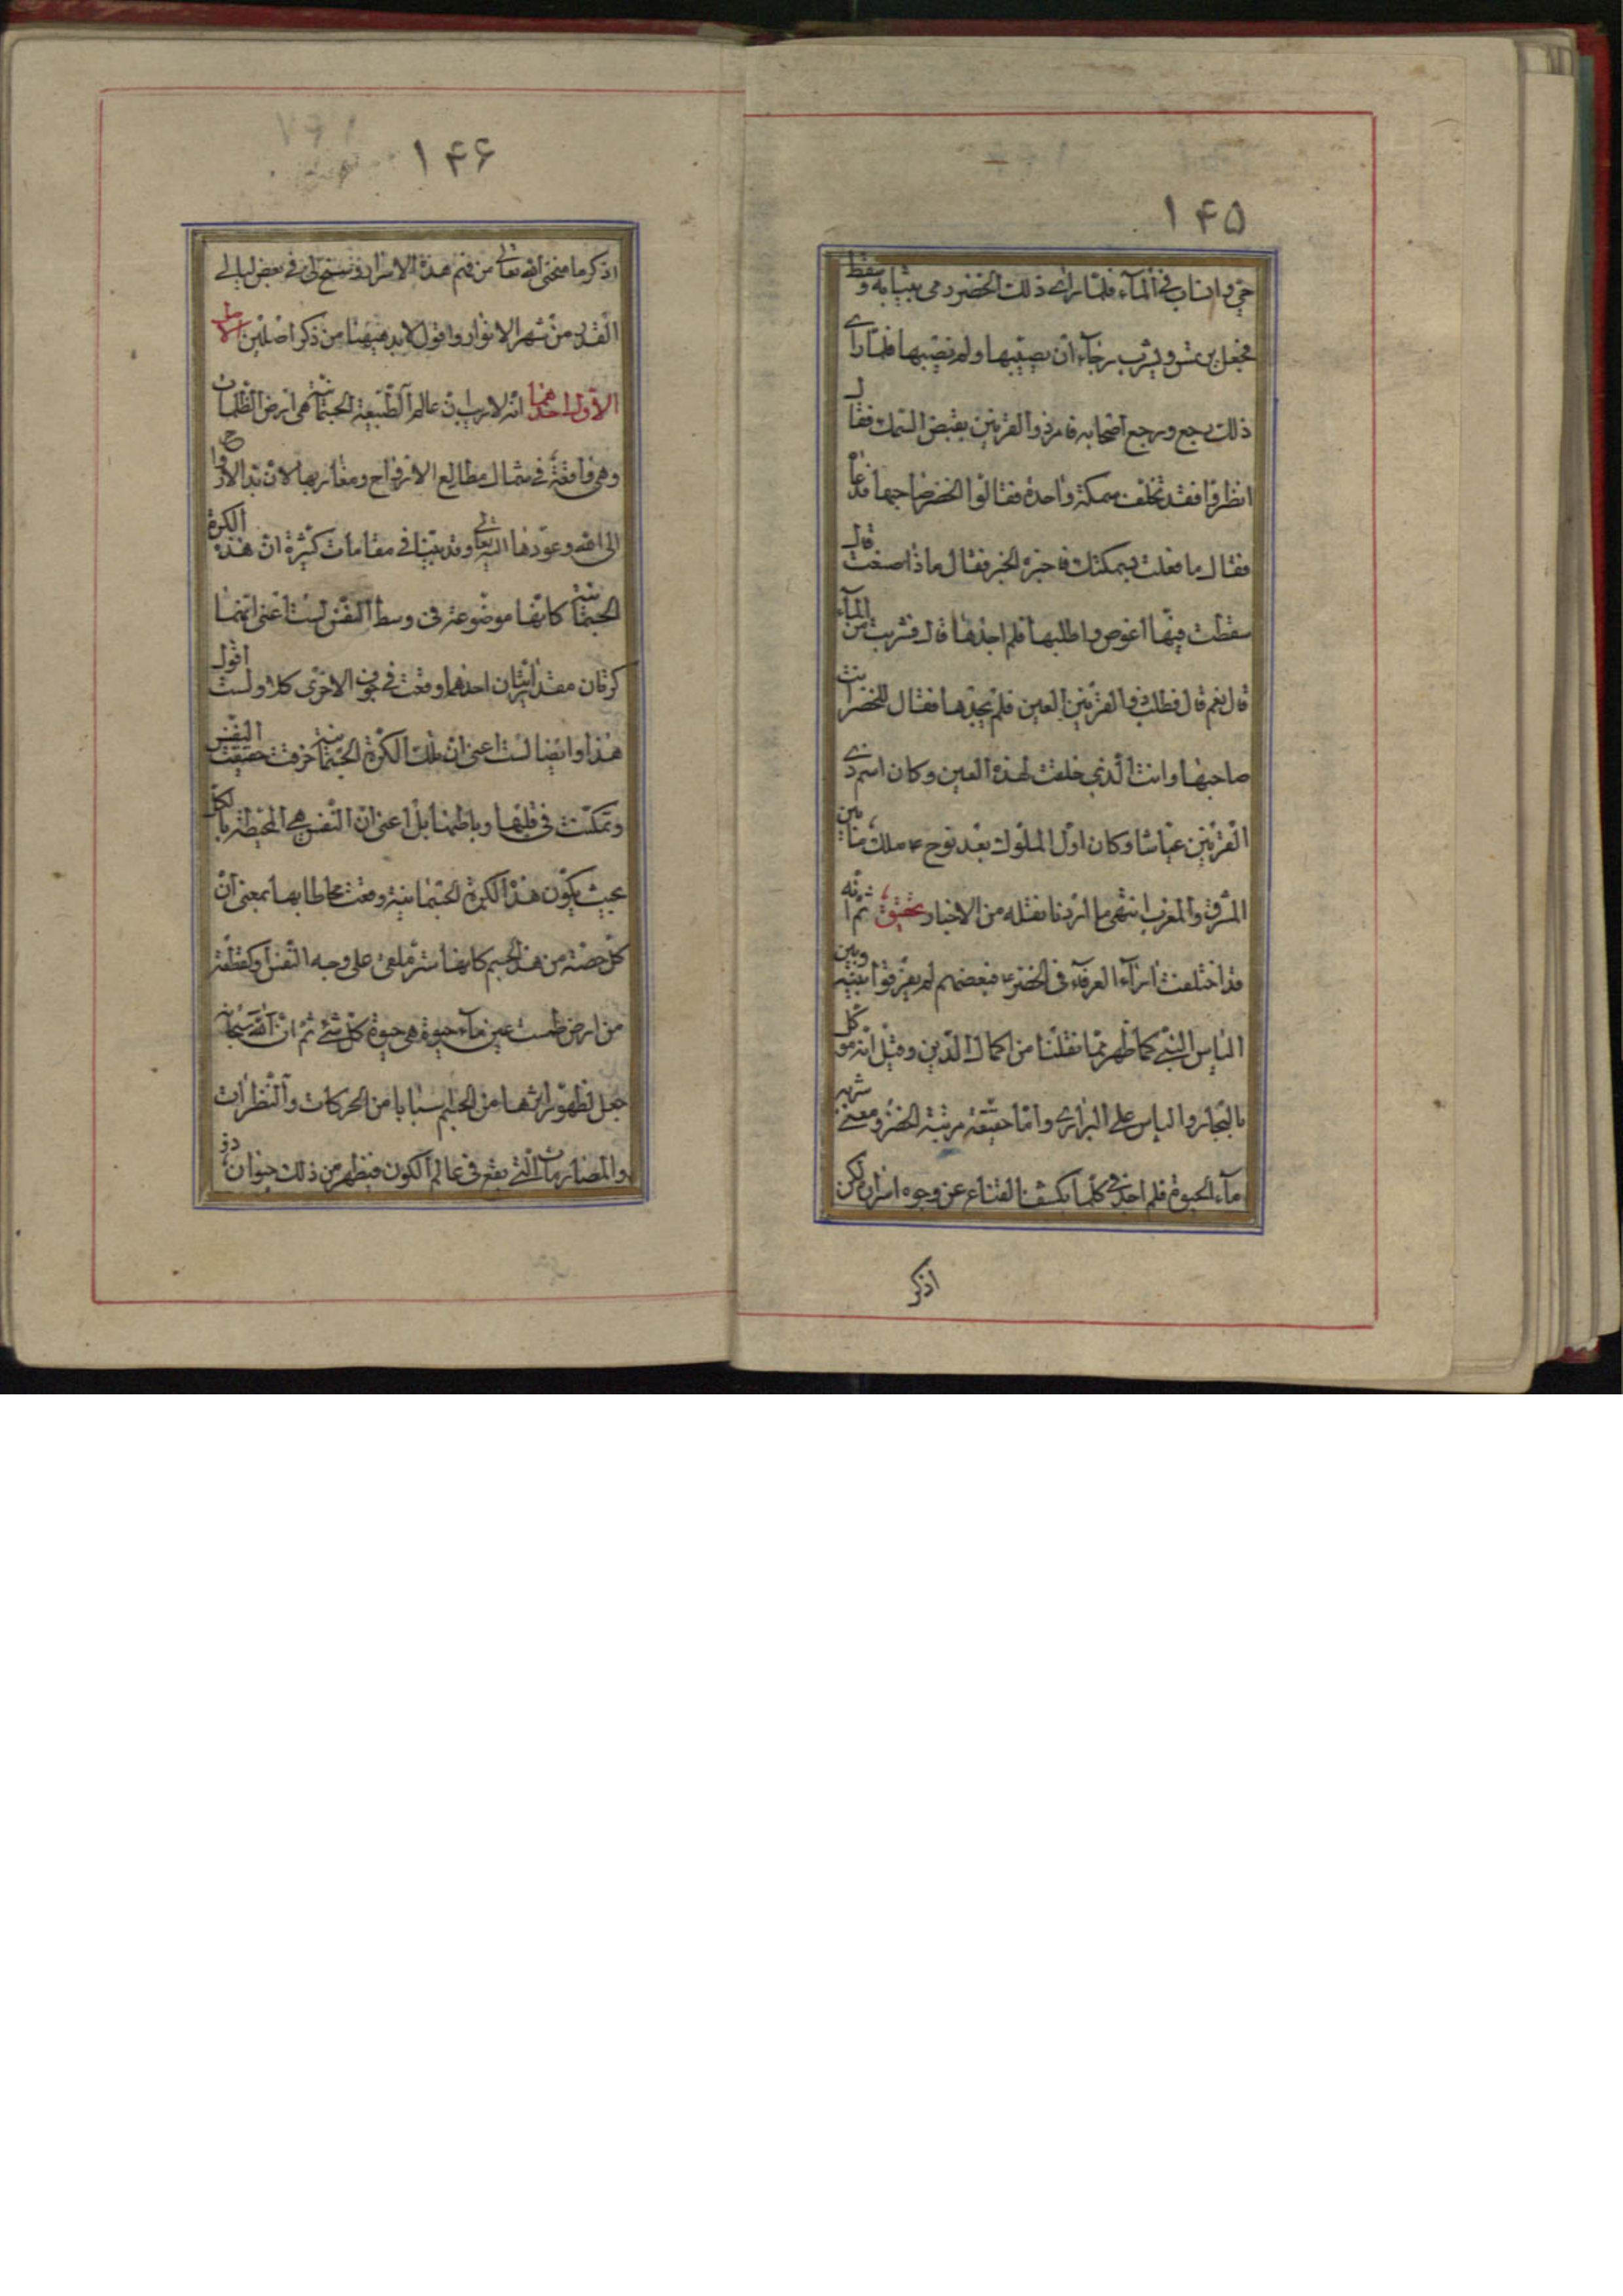 ۱۴۵
حتی وانساب فی المآء فلما رای ذلک الخضر رمی بثیابه وسقط
فجعل یرتمس ویشرب رجآء ان یصیبها ولم یصبها فلما رای
ذلک رجع ورجع اصحابه فامر ذوالقرنین بقبض السمک فقال
انظروا فقد تخلف سمکة واحدة فقالوا الخضر صاحبها فدعاه
فقال ما فعلت بسمکتک فاخبره الخبر فقال ماذا صنعت قال
سقطت فیها اغوص واطلبها فلم اجدها قال فشربت من المآء
قال نعم قال فطلب ذوالقرنین العین فلم یجدها فقال للخضر انت
صاحبها وانت الذی خلقت لهذه العین وکان اسم ذی
القرنین عیاشا وکان اول الملوک بعد نوح ع ملک ما بین
المشرق والمغرب انتهی ما اردنا نقله من الاخبار تحقیق ثم انه
قد اختلفت آراء العرفآء فی الخضر ع فبعضهم لم یفرقوا بینه وبین
الیاس النبی کما ظهر مما نقلنا من اکمال الدین وقیل انه موکل
بالبحار والیاس علی البراری واما حقیقة مرتبة الخضر ومعنی شربه
مآء الحیوة فلم اجد فی کلما یکشف القناع عن وجوه اسراره لکن
اذکر
۱۴۶
اذکر ما منحنی الله تعالی من فهم هذه الاسرار وسنح لی فی بعض لیالی
القدر من شهر الانوار واقول لابد هیهنا من ذکر اصلین
الاول احدهما انه لاریب ان عالم الطبیعة الجسمانیة هی ارض الظلمات
وهی واقعة فی شمال مطالع الارواح ومغاربها لان بدء الارواح
الی الله وعودها الیه تعالی وقد بینا فی مقامات کثیرة ان هذه الکرة
الجسمانیة کانها موضوعة فی وسط النفس لست اعنی انهما
کرتان مقداریتان احدهما وقعت فی جوف الاخری کلا ولست اقول
هذا وایضا لست اعنی ان تلک الکرة الجسمانیة خرقت حقیقة النفس
وتمکنت فی قلبها وباطنها بل اعنی ان النفس هی المحیطة بالکل
بحیث یکون هذه الکرة الجسمانیة وقعت محاطا بها بمعنی ان
کل حصة من هذا الجسم کانها ستر ملقی علی وجه النفس وکقطعة
من ارض طمت عین مآء حیوة هی حیوة کل شیء ثم ان الله سبحانه
جعل لظهور اثرها من الجسم اسبابا من الحرکات والنظرات
والمضاربات التی یقع فی عالم الکون فیظهر من ذلک حیوان ذو